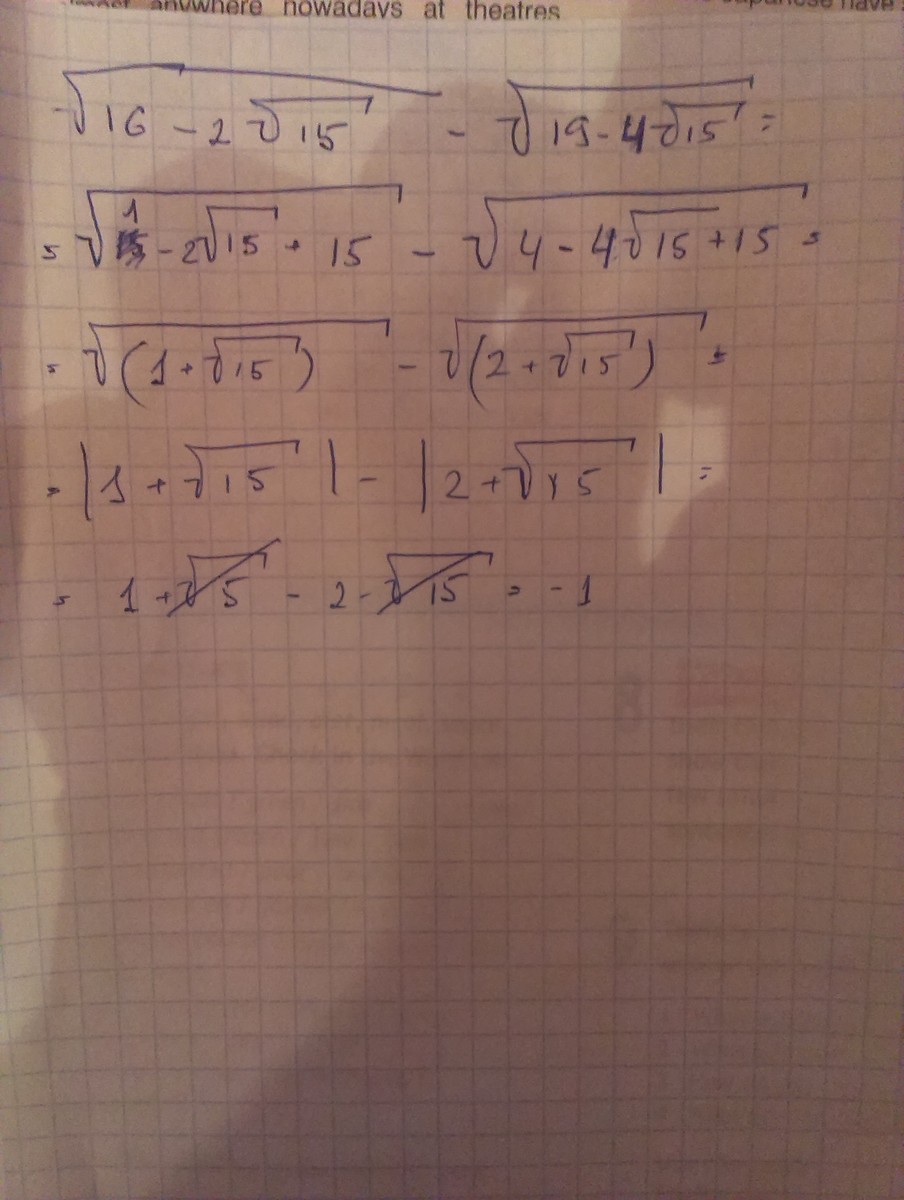 anywhere nowadays at theatres
have
√(16 - 2√15) - √(19 - 4√15) =
= √(1 - 2√15 + 15) - √(4 - 4√15 + 15) =
= √(1 + √15) - √(2 + √15) =
= |1 + √15| - |2 + √15| =
= 1 + √5 - 2 - √15 = -1